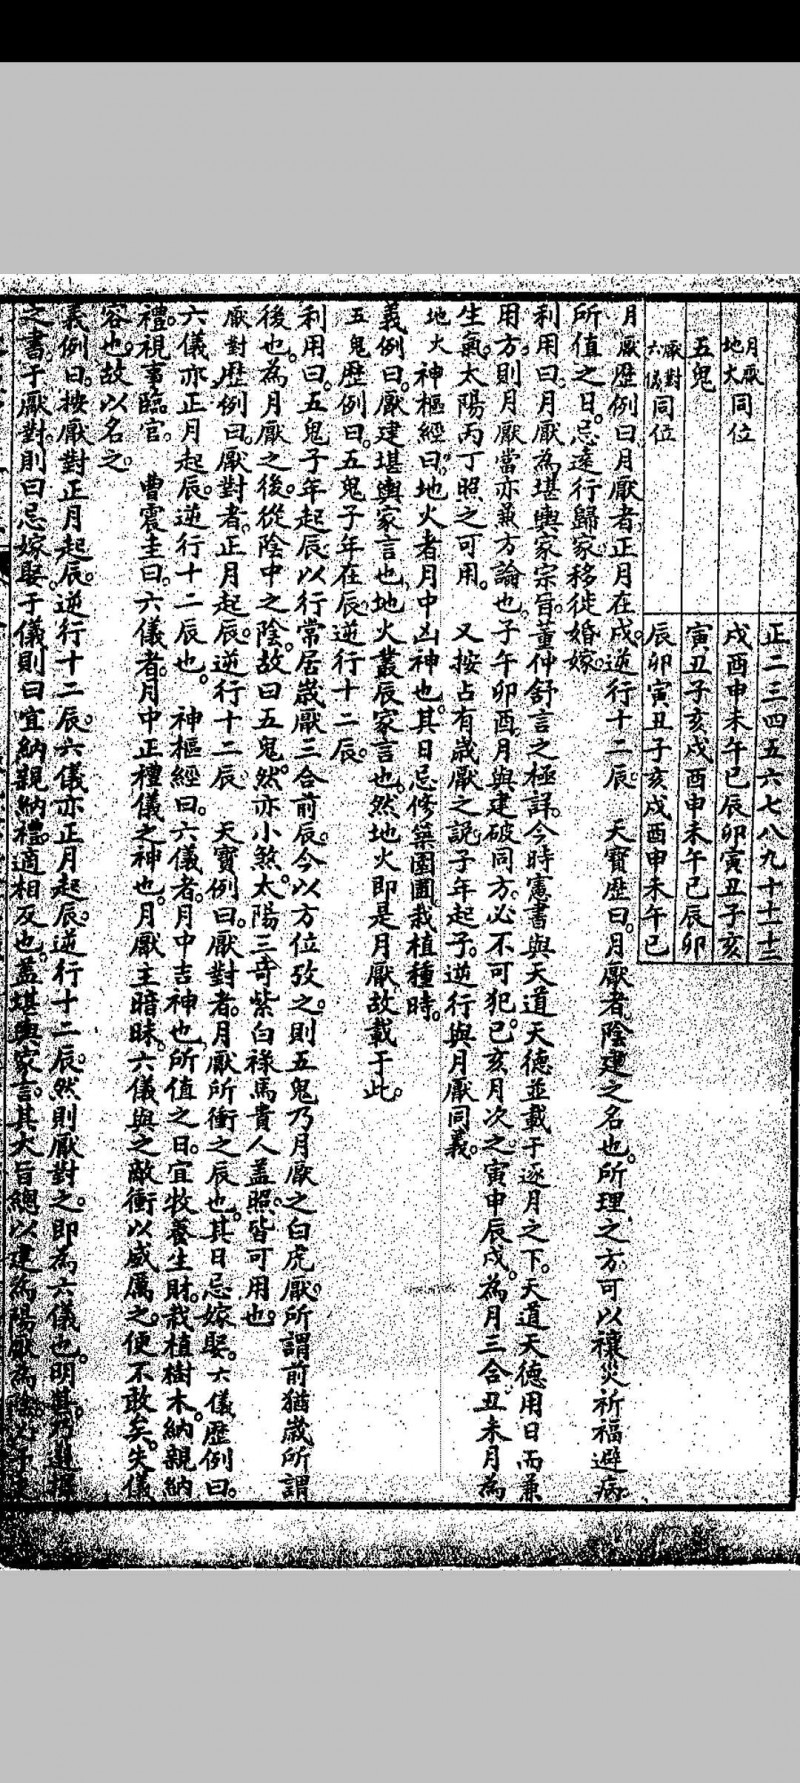 正二三四五六七八九十十一十二
月厭地火同位　戌酉申未午巳辰卯寅丑子亥
五鬼　寅丑子亥戌酉申未午巳辰卯
厭對六儀同位　辰卯寅丑子亥戌酉申未午巳
月厭歷例曰月厭者正月在戌。逆行十二辰。　天寶歷曰。月厭者陰建之名也。所理之方可以禳災祈福避病。
所值之日。忌遠行歸家移徙婚嫁。
利用曰。月厭為堪輿家宗旨。董仲舒言之極詳。今時憲書與天道天德並載于逐月之下。天道天德用日而兼
用方。則月厭當亦兼方論也。子午卯酉月與建破同方。必不可犯。巳亥月次之。寅申辰戌。為月三合。丑未月為
生氣。太陽丙丁照之可用。　又按占有歲厭之說。子年起子。逆行與月厭同義。
地火　神樞經曰。地火者月中凶神也。其日忌修築園圃栽植種時。
義例曰。厭建堪輿家言也。地火叢辰家言也。然地火即是月厭。故載于此。
五鬼歷例曰。五鬼子年在辰。逆行十二辰。
利用曰。五鬼子年起辰。以行常居歲厭三合前辰。今以方位攷之。則五鬼乃月厭之白虎。厭所謂前猶歲所謂
後也。為月厭之後。從陰中之陰。故曰五鬼。然亦小煞。太陽三奇紫白祿馬貴人蓋照。皆可用也。
厭對歷例曰。厭對者。正月起辰。逆行十二辰　天寶例曰。厭對者。月厭所衝之辰也。其日忌嫁娶。六儀歷例曰。
六儀亦正月起辰。逆行十二辰也。　神樞經曰。六儀者。月中吉神也。所值之日。宜牧養生財。栽植樹木。納親納
禮。視事臨官。　曹震圭曰。六儀者。月中正禮儀之神也。月厭主暗昧。六儀與之敵衝。以威厲之。便不敢矣。失儀
容也。故以名之。
義例曰。按厭對正月起辰。逆行十二辰。六儀亦正月起辰。逆行十二辰。然則厭對之。即為六儀也。明甚。乃選擇
之書。于厭對。則曰忌嫁娶。于儀則曰宜納親納禮。適相反也。蓋堪輿家言。其大旨總以建為陽厭為陰